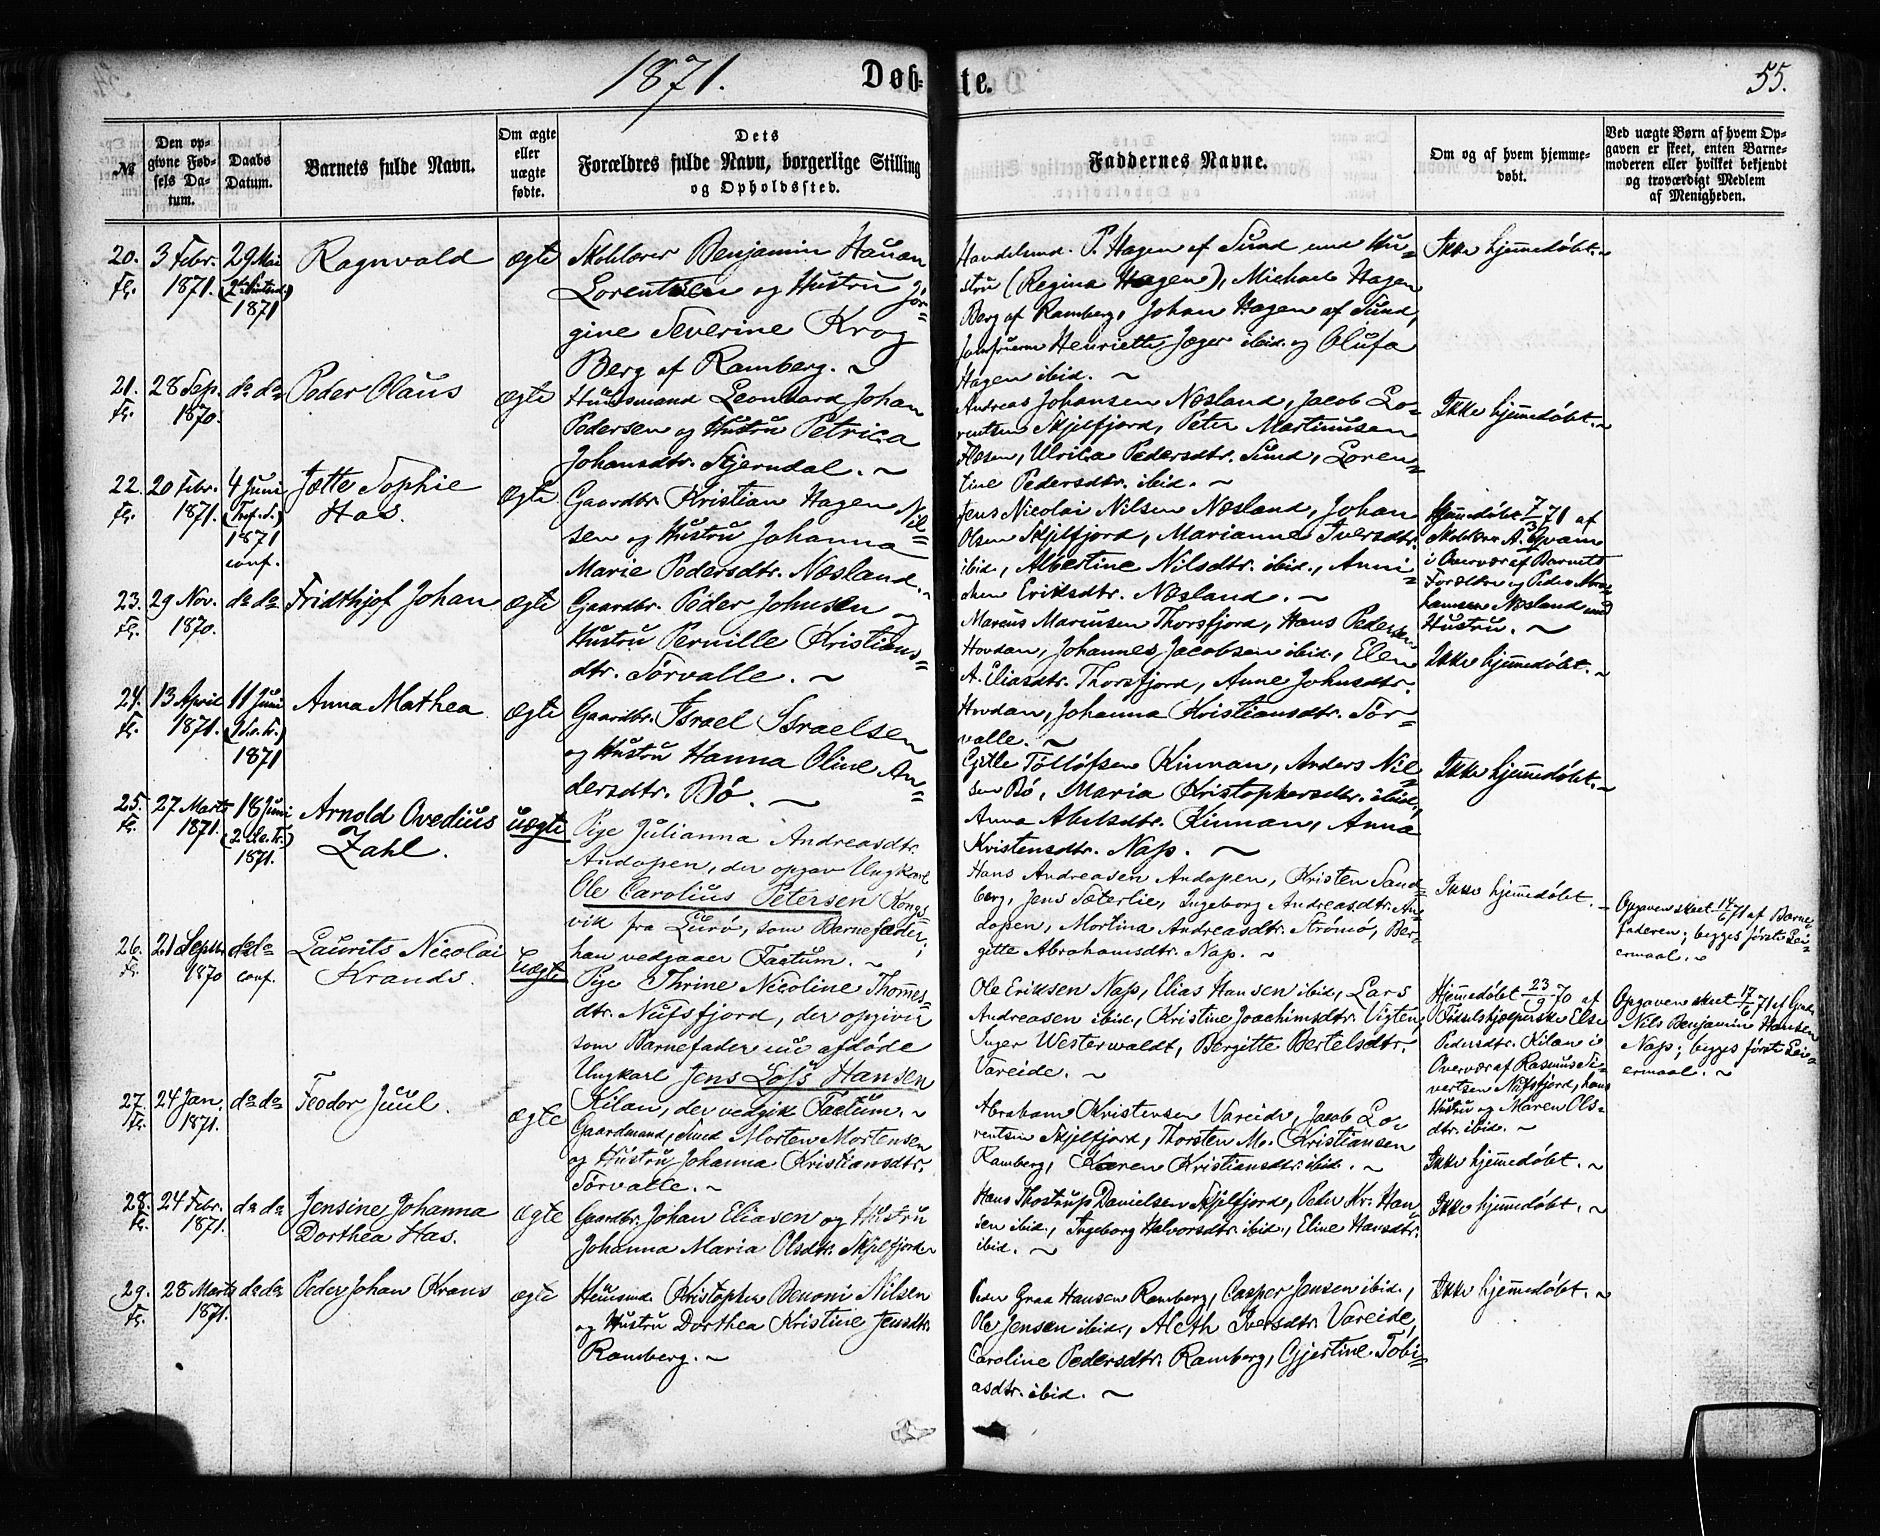 1871.
Døb-
te.
55.
№
Den op-
givne Fød-
sels Da-
tum.
Daabs
Datum.
Barnets fulde Navn.
Om ægte
eller
uægte
fødte.
Dets
Forældres fulde Navn, borgerlige Stilling
og Opholdssted.
Faddernes Navne.
Om og af hvem hjemme-
døbt.
Ved uægte Børn af hvem Op-
gaven er skeet, enten Barne-
moderen eller hvilket bekjendt
og troværdigt Medlem
af Menigheden.
20.
Fl.
3 Febr.
1871.
29 Mai
1871
Ragnvald
ægte
Skolelærer Benjamin Hauan
Lorentsen og Hustru Jør=
gine Severine Krog
Berg af Ramberg. ~
Handelsmd. P. Hagen af Sund med Hu=
stru (Regina Hagen), Michael Hagen
Berg af Ramberg, Johan Hagen af Sund,
Jomfruerne Henriette Jæger ibid. og Olufa
Hagen ibid. ~
Ikke hjemmedøbt. ~
21.
Fl.
28 Sep.
1870.
do do
Peder Olaus
ægte
Huusmand Leonhard Johan
Pedersen og Hustru Petrica
Johansdtr. Stjerndal. ~
Andreas Johansen Næsland, Jacob Lo=
rentsen Skjelfjord, Peter Martinusen
Flesen, Ulrika Pedersdtr. Sund, Loren=
tine Pedersdtr. ibid. ~
Ikke hjemmedøbt. ~
22.
Fl.
20 Febr.
1871.
4 Juni
(Tref. S.)
1871
conf.
Jætte Sophie
Has.
ægte
Gaardbr. Kristian Hagen Nil=
sen og Hustru Johanna
Marie Pedersdtr. Næsland. ~
Jens Nicolai Nilsen Næsland, Johan
Olsen Skjelfjord, Marianne Iversdtr.
ibid., Albertine Nilsdtr. ibid., Anni=
chen Eriksdtr. Næsland. ~
Hjemmedøbt 7/3 71 af
Skolelærer A. Qvam
i Overvær af Barnets
Forældre og Peder
Næsland med
Hustru. ~
23.
Fl.
29 Nov.
1870.
do do
Fridthjof Johan
ægte
Gaardbr. Peder Johnsen og
Hustru Pernille Kristians=
dtr. Sørvalle. ~
Marcus Marcusen Thorsfjord, Hans Pedersen
Hovdan, Johannes Jacobsen ibid., Elen
A. Eliasdtr. Thorsfjord, Anne Johnsdtr.
Hovdan, Johanna Kristiansdtr. Sør=
valle. ~
Ikke hjemmedøbt. ~
24.
Fl.
13 April
1871.
11 Juni
(1 S. e. Tr.)
1871
Anna Mathea
ægte
Gaardbr. Israel Israelsen
og Hustru Hanna Oline An=
dersdtr. Bø. ~
Tølløfsen Kinnan, Anders Nil=
sen Bø, Maria Kristophersdtr. ibid.,
Anna Abelsdtr. Kinnan, Anna
Kristensdtr. Nap. ~
Ikke hjemmedøbt. ~
25.
Fl.
27 Marts
1871.
18 Juni
(2 S. e. Tr.)
1871.
Arnold Ovedius
Zahl.
uægte
Pige Julianna Andreasdtr.
Andopen, der opgav Ungkarl
Ole Carolius Petersen Kongs=
vik fra Lurø, som Barnefader;
han vedgaaer Factum. ~
Hans Andreasen Andopen, Kristen Sand=
berg, Jens Sæterlie, Ingeborg Andreasdtr. An=
dopen, Martina Andreasdtr. Strømø, Ber=
gitte Abrahamsdtr. Nap. ~
Ikke hjemmedøbt. ~
Opgaven skeet 14/6 71 af Barne=
faderen; begges første Lei=
ermaal. ~
26.
Fl.
21 Septbr.
1870
do do
conf.
Laurits Nicolai
Krands.
Uægte
Pige Thrine Nicoline Thomes=
dtr. Nufsfjord, der opgiver
som Barnefader nu afdøde
Ungkarl Jens Loss Hansen
Kilan, der vedgik Factum. ~
Ole Eriksen Nap, Elias Hansen ibid., Lars
Andreasen ibid., Kristine Joachimsdtr. Vigten,
Inger Westerwaldt, Bergitte Bertelsdtr.
Vareide. ~
Hjemmedøbt 23/9 70 af
Fødselshjælperske Else
Pedersdtr. Kilan i
Overvær af Rasmus Si=
vertsen Nufsfjord, hans
Hustru og Maren Ols=
dtr. ibid. ~
Opgaven skeet 17/6 71 af Gaardbr.
Nils Benjamin Hansen
Nap; begges første Lei=
ermaal. ~
27.
Fl.
24 Jan.
1871.
do do
Teodor Juul.
ægte
Gaardmand, Smed Morten Mortensen
og Hustru Johanna Kristiansdtr.
Sørvalle. ~
Abraham Kristensen Vareide, Jacob Lo=
rentsen Skjelfjord, Thorsten M. Kristiansen
Ramberg, Karen Kristiansdtr. ibid. ~
Ikke hjemmedøbt. ~
28.
Fl.
24 Febr.
1871.
do do
Jensine Johanna
Dorthea Has.
ægte
Gaardbr. Johan Eliasen og Hustru
Johanna Maria Olsdtr. Skjelfjord
Hans Thostrup Danielsen Skjelfjord, Peder Kr. Han=
sen ibid., Ingeborg Halvorsdtr. ibid., Eline Hansdtr.
ibid. ~
Ikke hjemmedøbt. ~
29.
Fl.
28 Marts
1871.
do do
Peder Johan Krans
ægte
Huusmd. Kristopher Benoni Nilsen
og Hustru Dorthea Kristine Jensdtr.
Ramberg. ~
Peder Graa Hansen Ramberg, Casper Jensen ibid.,
Ole Jensen ibid., Aleth Iversdtr. Vareide,
Caroline Pedersdtr. Ramberg, Gjertine Tobi=
asdtr. ibid. ~
Ikke hjemmedøbt. ~